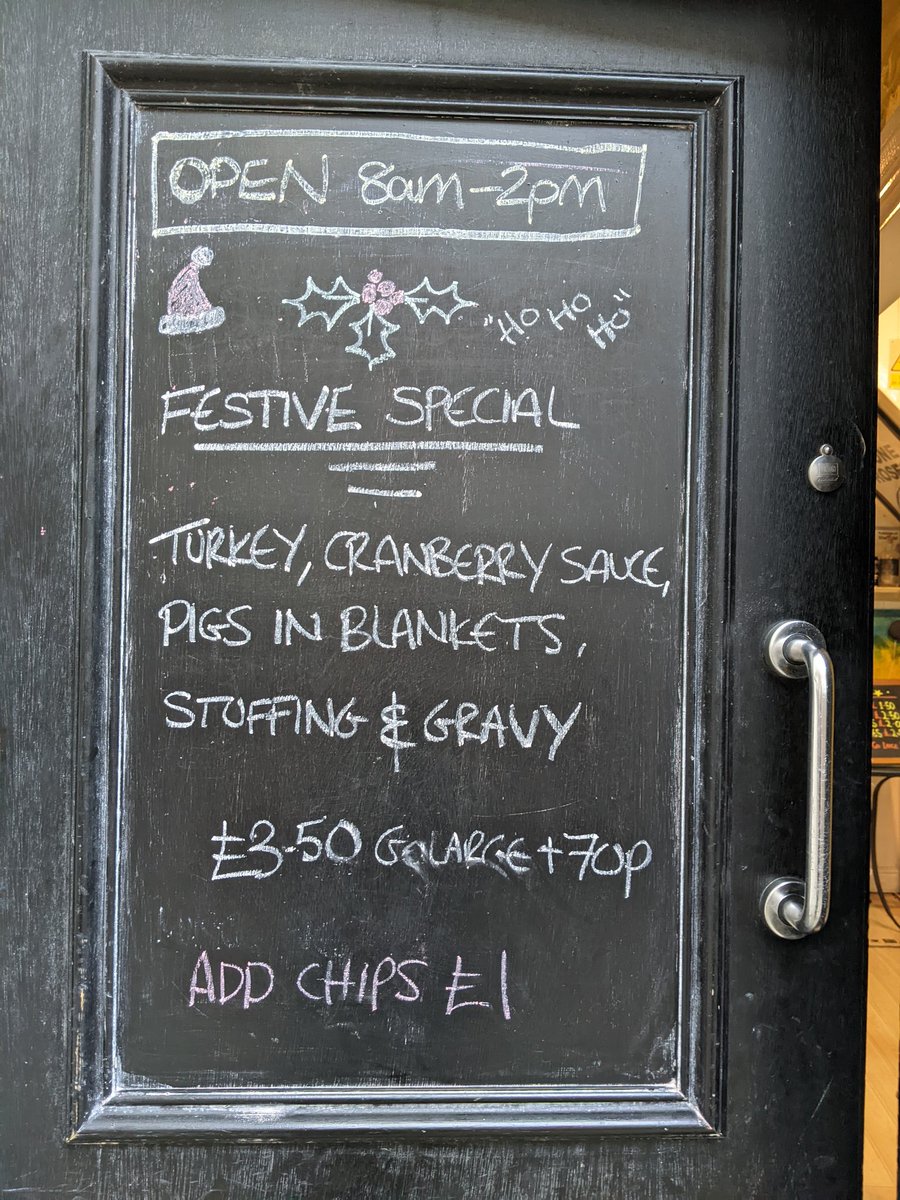 OPEN 8am-2pm
"HO HO
HO"
FESTIVE SPECIAL
TURKEY, CRANBERRY SAUCE,
PIGS IN BLANKETS,
STUFFING & GRAVY
£3-50 GO LARGE +70p
ADD CHIPS £1